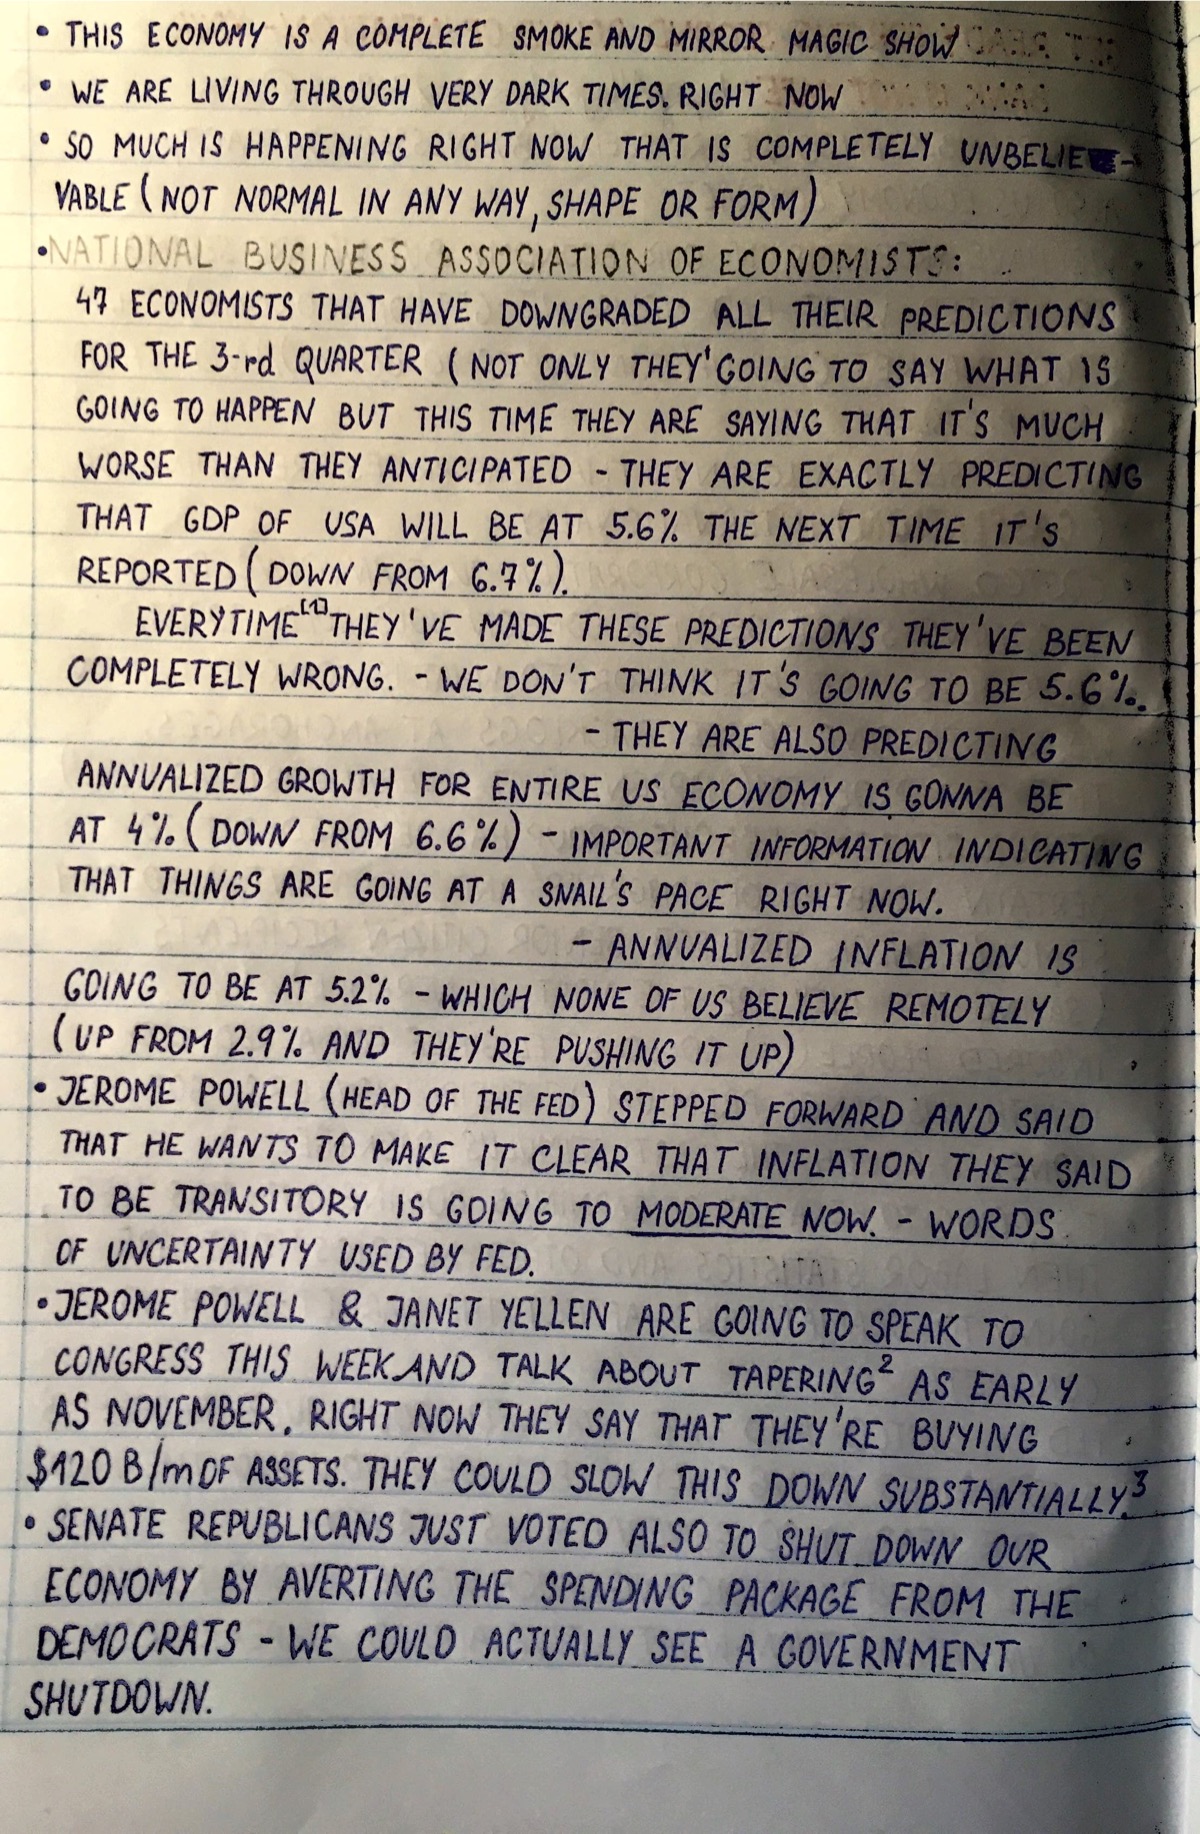 • THIS ECONOMY IS A COMPLETE SMOKE AND MIRROR MAGIC SHOW
• WE ARE LIVING THROUGH VERY DARK TIMES. RIGHT NOW
• SO MUCH IS HAPPENING RIGHT NOW THAT IS COMPLETELY UNBELIE-
VABLE (NOT NORMAL IN ANY WAY, SHAPE OR FORM)
• NATIONAL BUSINESS ASSOCIATION OF ECONOMISTS:
47 ECONOMISTS THAT HAVE DOWNGRADED ALL THEIR PREDICTIONS
FOR THE 3-rd QUARTER (NOT ONLY THEY'GOING TO SAY WHAT IS
GOING TO HAPPEN BUT THIS TIME THEY ARE SAYING THAT IT'S MUCH
WORSE THAN THEY ANTICIPATED - THEY ARE EXACTLY PREDICTING
THAT GDP OF USA WILL BE AT 5.6% THE NEXT TIME IT'S
REPORTED (DOWN FROM 6.7%).
EVERYTIME[1] THEY'VE MADE THESE PREDICTIONS THEY'VE BEEN
COMPLETELY WRONG. - WE DON'T THINK IT'S GOING TO BE 5.6%.
- THEY ARE ALSO PREDICTING
ANNUALIZED GROWTH FOR ENTIRE US ECONOMY IS GONNA BE
AT 4% (DOWN FROM 6.6%) - IMPORTANT INFORMATION INDICATING
THAT THINGS ARE GOING AT A SNAIL'S PACE RIGHT NOW.
- ANNUALIZED INFLATION IS
GOING TO BE AT 5.2% - WHICH NONE OF US BELIEVE REMOTELY
(UP FROM 2.9% AND THEY'RE PUSHING IT UP)
• JEROME POWELL (HEAD OF THE FED) STEPPED FORWARD AND SAID
THAT HE WANTS TO MAKE IT CLEAR THAT INFLATION THEY SAID
TO BE TRANSITORY IS GOING TO MODERATE NOW. - WORDS
OF UNCERTAINTY USED BY FED.
• JEROME POWELL & JANET YELLEN ARE GOING TO SPEAK TO
CONGRESS THIS WEEK AND TALK ABOUT TAPERING² AS EARLY
AS NOVEMBER. RIGHT NOW THEY SAY THAT THEY'RE BUYING
$120 B/m OF ASSETS. THEY COULD SLOW THIS DOWN SUBSTANTIALLY.³
• SENATE REPUBLICANS JUST VOTED ALSO TO SHUT DOWN OUR
ECONOMY BY AVERTING THE SPENDING PACKAGE FROM THE
DEMOCRATS - WE COULD ACTUALLY SEE A GOVERNMENT
SHUTDOWN.